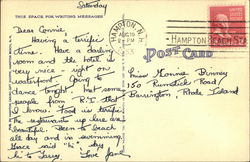 Saturday
THIS SPACE FOR WRITING MESSAGES
Dear Connie,
Having a terrific
time. Have a darling
room and the hotel is
very nice - right on
waterfront. Going to
dance tonight, met some
people from R.I. that
I know. Food is terrific
The restaurants up here are
beautiful. Been to beach
all day and in swimming.
Grace said "hi". Say
hi to Larry. Love Jane
HAMPTON, N.H.
AUG
PM
HAMPTON BEACH
POST CARD
Miss Connie Binney
150 Rumstick Road
Barrington, Rhode Island